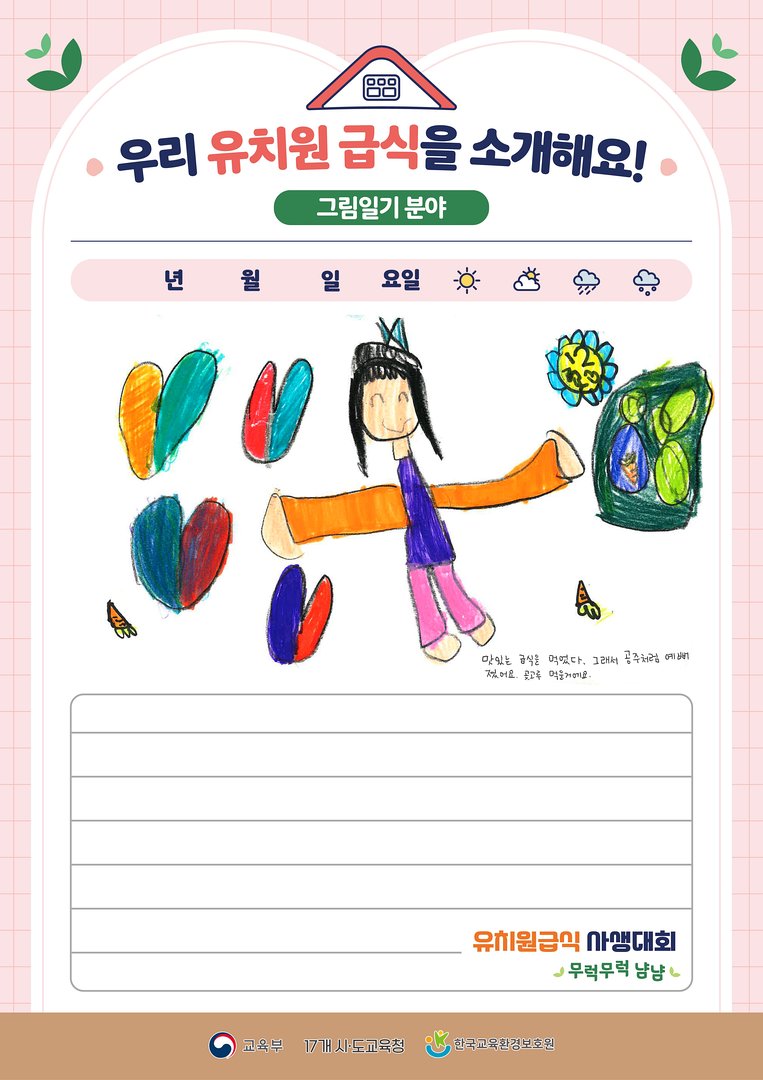 우리 유치원 급식을 소개해요!
그림일기 분야
년 월 일 요일
맛있는 급식을 먹었다. 그래서 공주처럼 예뻐
졌어요. 골고루 먹을거에요.
유치원급식 사생대회
무럭무럭 냠냠
교육부 17개 시·도교육청 한국교육환경보호원